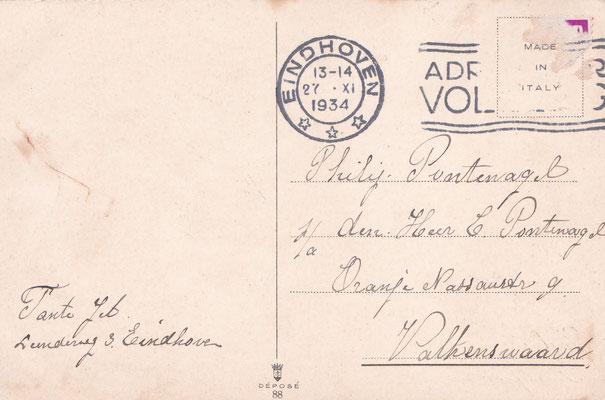 EINDHOVEN
13-14
27 · XI
1934
ADR
VOL
MADE
IN
ITALY
Philip. Pontenagel
p/a den. Heer C. Pontenagel
Oranje Nassaustr 9.
Valkenswaard.
Tante Jet.
3. Eindhoven
DÉPOSÉ
88